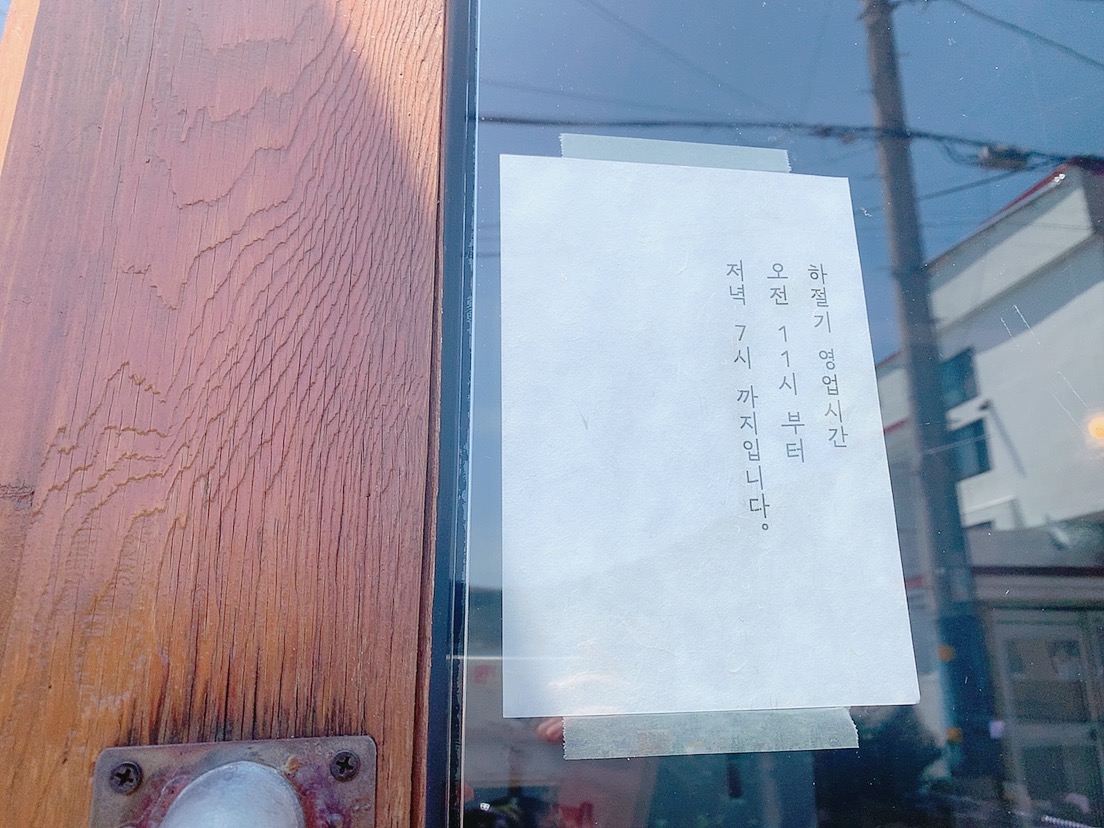 하절기 영업시간
오전 11시 부터
저녁 7시 까지입니다.